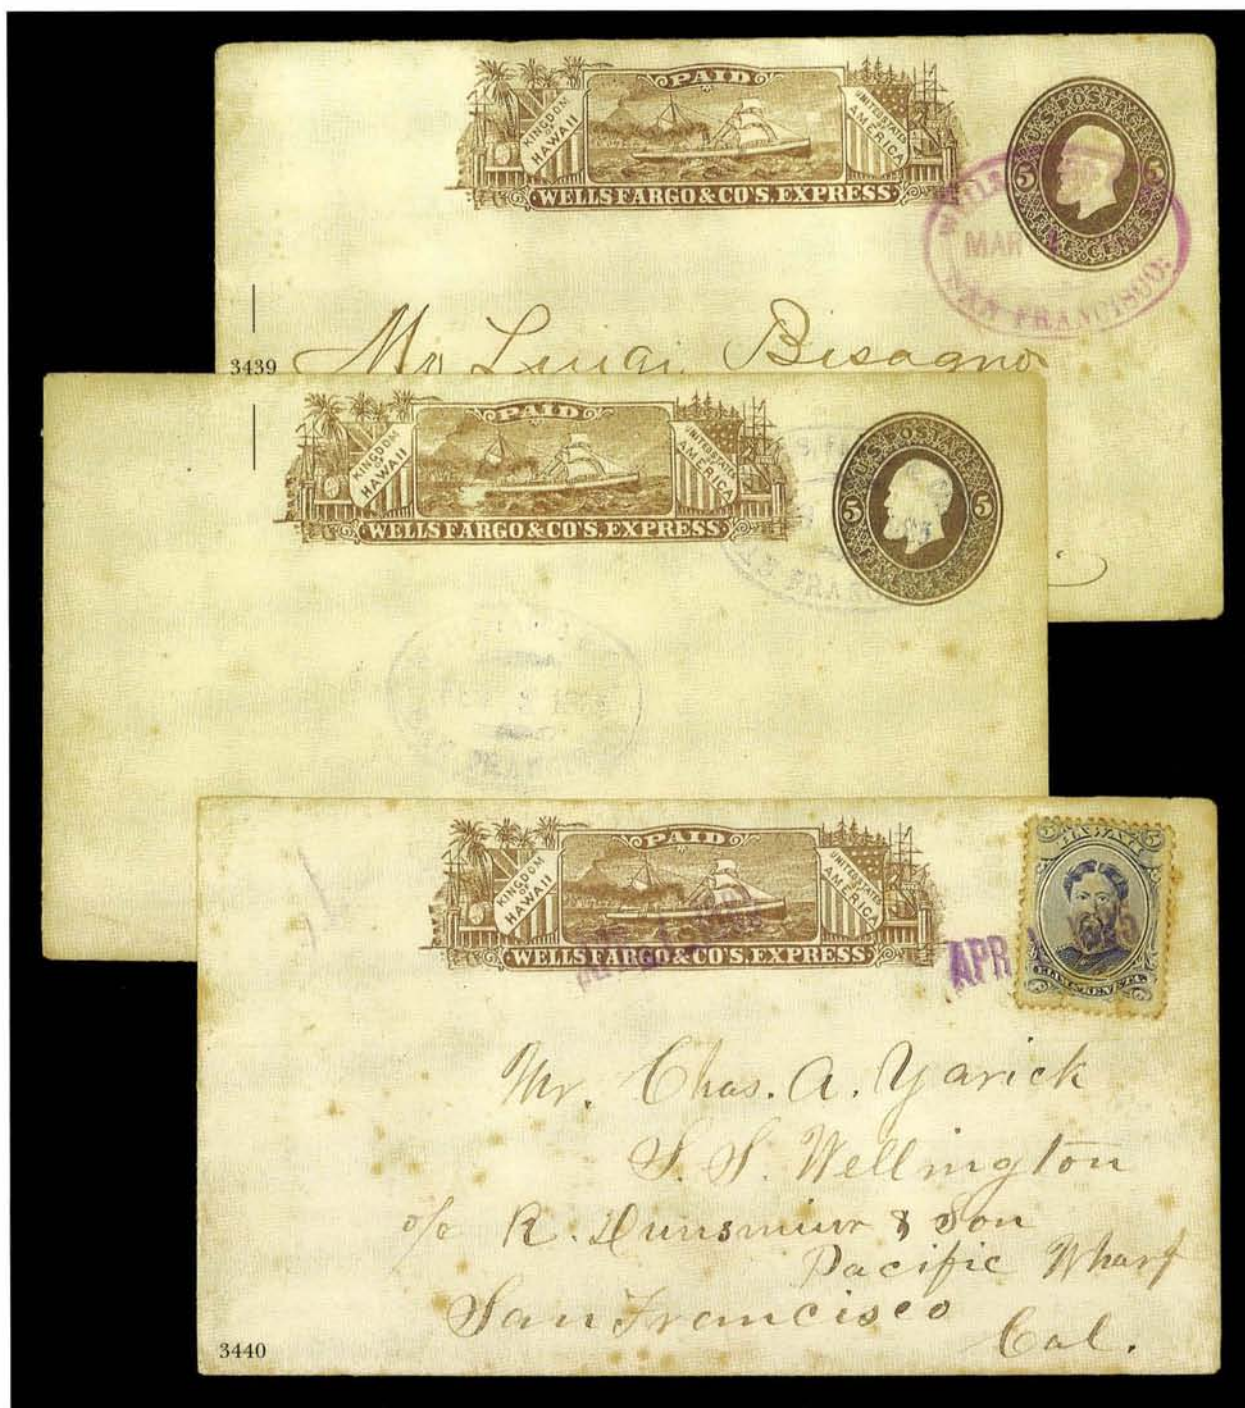 PAID
KINGDOM OF HAWAII
UNITED STATES AMERICA
WELLS FARGO & CO'S. EXPRESS
U.S. POSTAGE
5 5
WELLS
MAR
SAN FRANCISCO.
3439
Mr Luigi Bisagno
PAID
KINGDOM OF HAWAII
UNITED STATES AMERICA
WELLS FARGO & CO'S. EXPRESS
U.S. POSTAGE
5 5
PAID
KINGDOM OF HAWAII
UNITED STATES AMERICA
WELLS FARGO & CO'S. EXPRESS
5 HAWAII 5
APR
Mr. Chas. A. Yarick
S. S. Wellington
c/o R. Dunsmuir & Son
Pacific Wharf
San Francisco
Cal.
3440